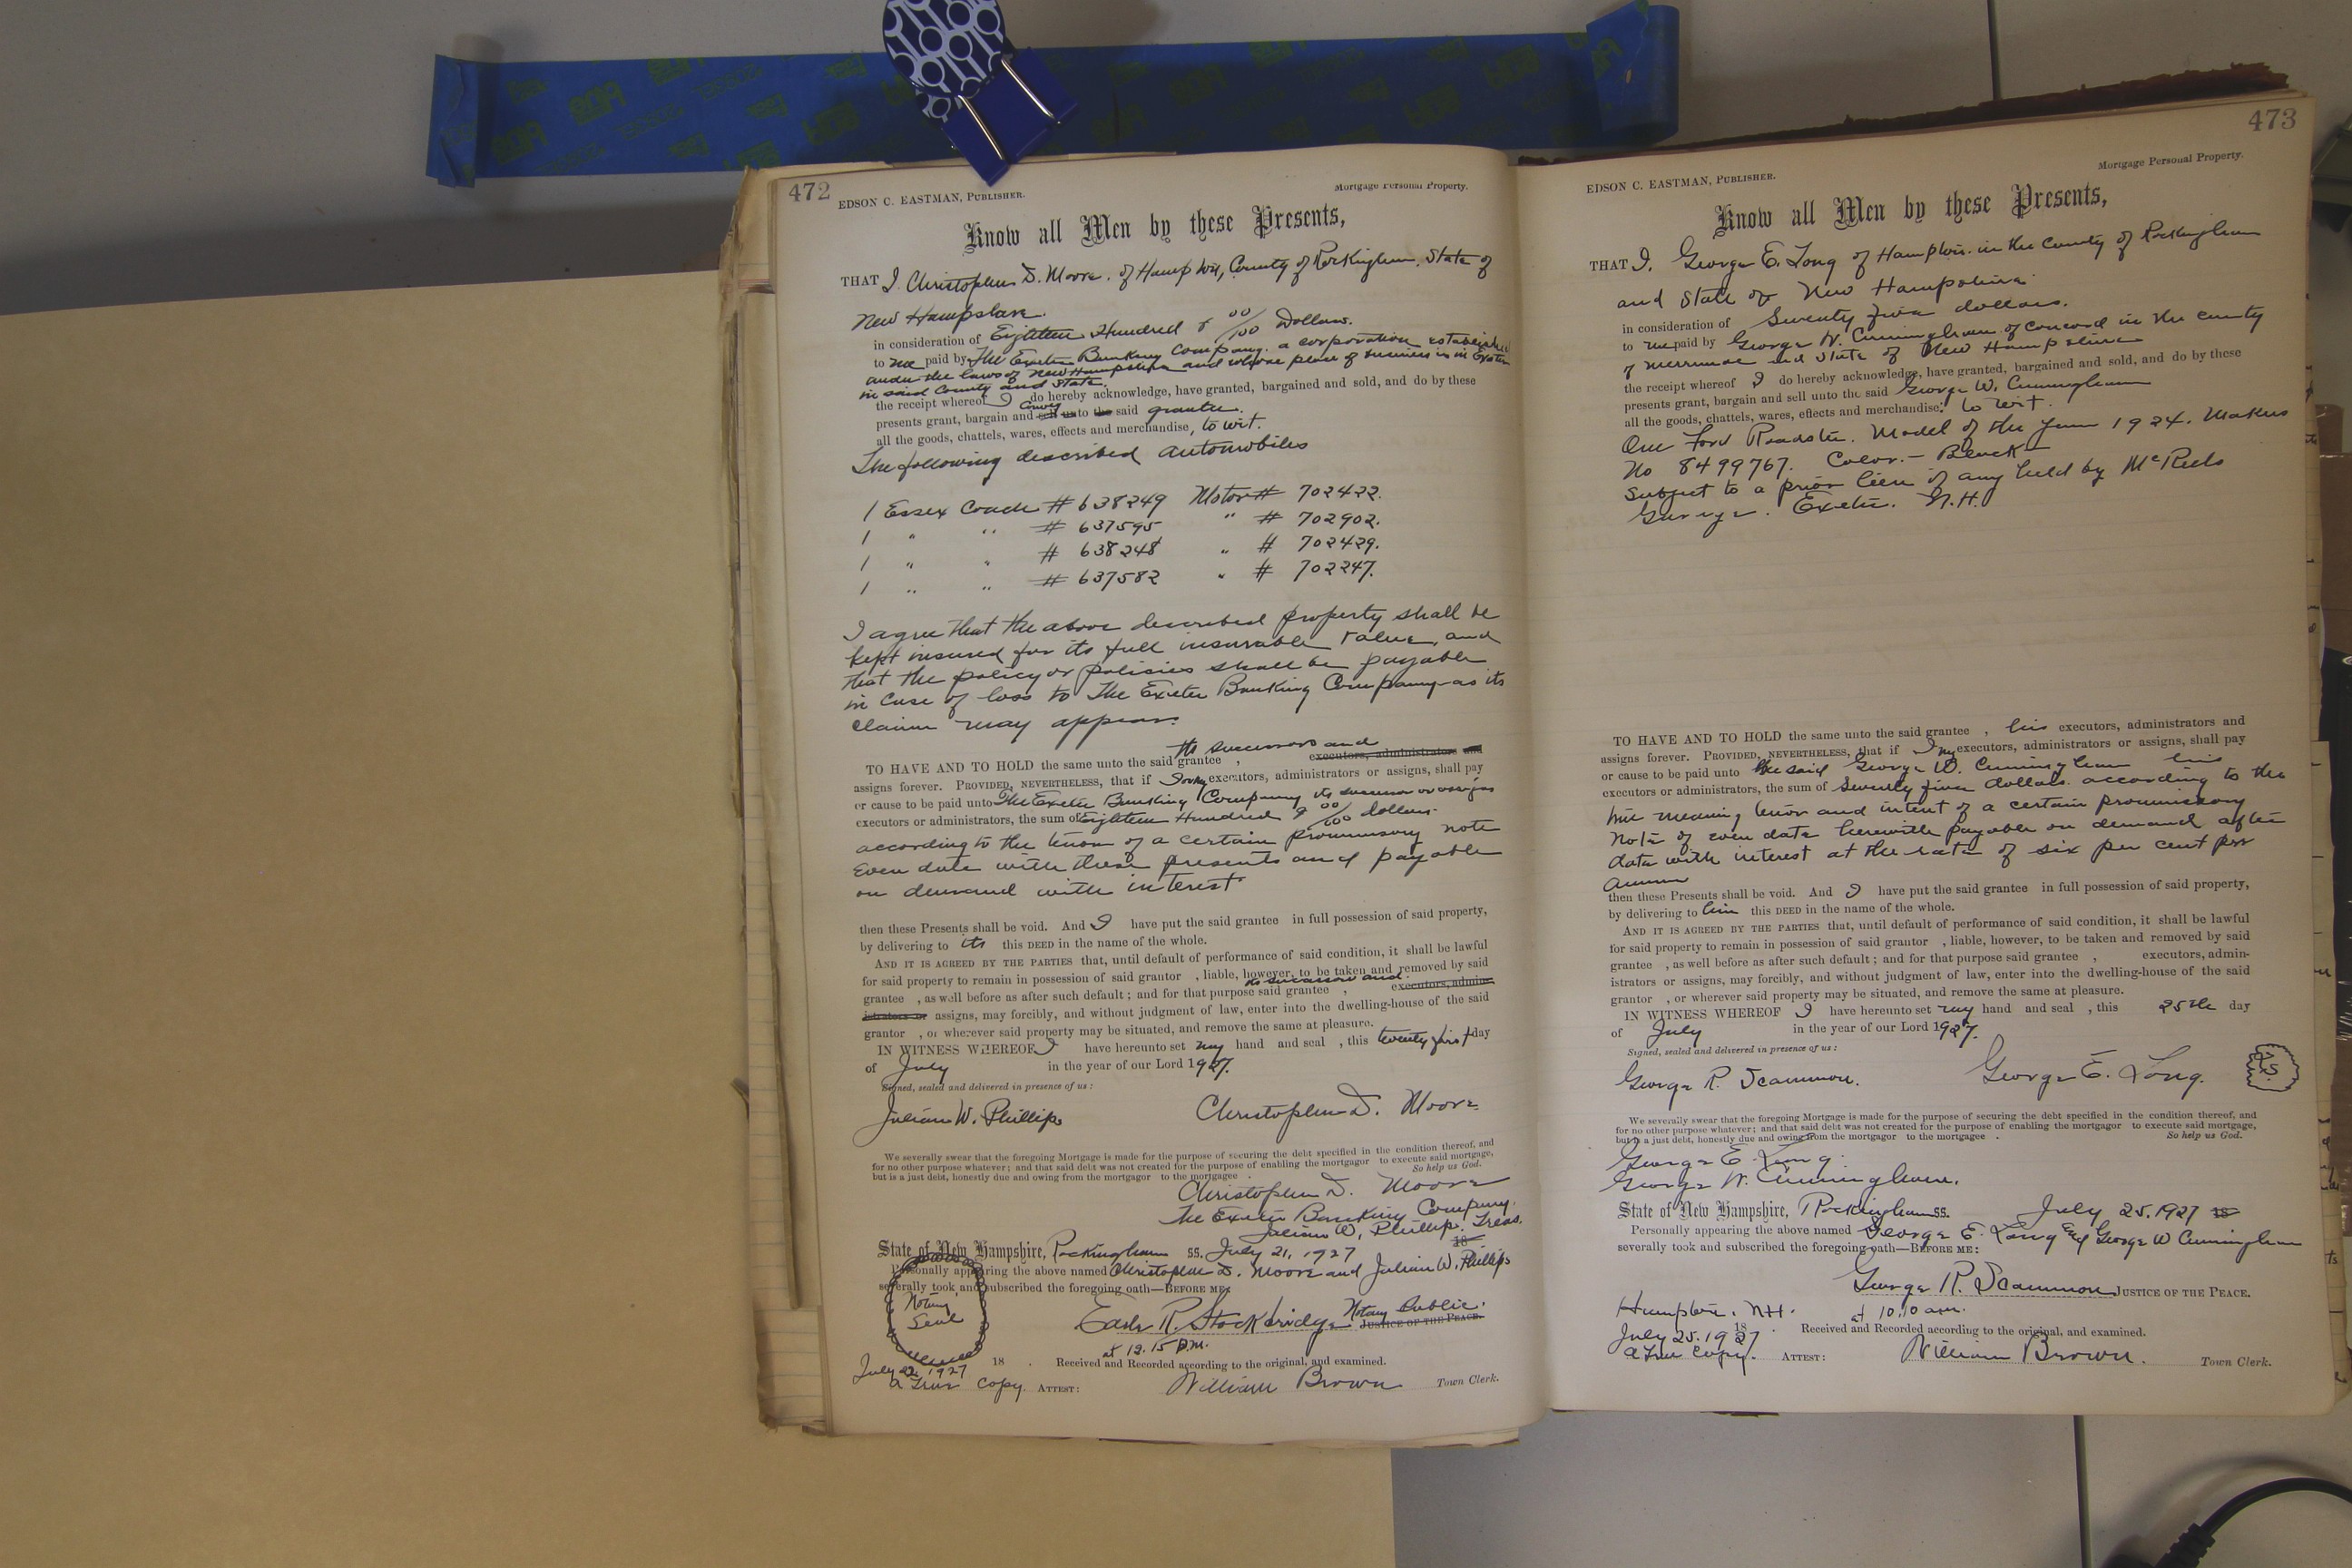 472
EDSON C. EASTMAN, PUBLISHER.
Mortgage Personal Property.
Know all Men by these Presents,
THAT I Christopher D. Moore. of Hampton, County of Rockingham, State of
New Hampshire.
in consideration of Eighteen Hundred & 00/100 Dollars.
to me paid by The Exeter Banking Company. a corporation established
under the laws of New Hampshire and whose place of business is in Exeter
in said County and State.
the receipt whereof I do hereby acknowledge, have granted, bargained and sold, and do by these
Convey
presents grant, bargain and sell unto the said grantee.
all the goods, chattels, wares, effects and merchandise, to wit.
The following described automobiles
1 Essex Coach # 638249 Motor # 702422.
1 " " # 637595 " # 702902.
1 " " # 638248 " # 702429.
1 " " # 637582 " # 702247.
I agree that the above described property shall be
kept insured for its full insurable value, and
that the policy or policies shall be payable
in case of loss to The Exeter Banking Company as its
claim may appear.
its successors and
TO HAVE AND TO HOLD the same unto the said grantee , executors, administrators and
assigns forever. PROVIDED, NEVERTHELESS, that if I or my executors, administrators or assigns, shall pay
or cause to be paid unto The Exeter Banking Company its successor or assigns
executors or administrators, the sum of Eighteen Hundred & 00/100 dollars.
according to the tenor of a certain promissory note
even date with these presents and payable
on demand with interest
then these Presents shall be void. And I have put the said grantee in full possession of said property,
by delivering to its this DEED in the name of the whole.
AND IT IS AGREED BY THE PARTIES that, until default of performance of said condition, it shall be lawful
for said property to remain in possession of said grantor , liable, however, to be taken and removed by said
its successors and
grantee , as well before as after such default; and for that purpose said grantee , executors, admin-
istrators or assigns, may forcibly, and without judgment of law, enter into the dwelling-house of the said
grantor , or wherever said property may be situated, and remove the same at pleasure.
IN WITNESS WHEREOF I have hereunto set my hand and seal , this twenty first day
of July in the year of our Lord 1927.
Signed, sealed and delivered in presence of us:
Julian W. Phillips Christopher D. Moore
We severally swear that the foregoing Mortgage is made for the purpose of securing the debt specified in the condition thereof, and
for no other purpose whatever; and that said debt was not created for the purpose of enabling the mortgagor to execute said mortgage,
but is a just debt, honestly due and owing from the mortgagor to the mortgagee . So help us God.
Christopher D. Moore
The Exeter Banking Company.
Julian W. Phillips. Treas.
State of New Hampshire, Rockingham SS. July 21, 1927 18
Personally appearing the above named Christopher D. Moore and Julian W. Phillips
severally took and subscribed the foregoing oath—BEFORE ME:
Notary
Seal
Earle R. Stockbridge Notary Public.
JUSTICE OF THE PEACE.
at 12.15 P.M.
July 22, 1927 18 . Received and Recorded according to the original, and examined.
a True Copy. ATTEST: William Brown Town Clerk.
473
EDSON C. EASTMAN, PUBLISHER.
Mortgage Personal Property.
Know all Men by these Presents,
THAT I. George E. Long of Hampton. in the County of Rockingham
and State of New Hampshire
in consideration of Seventy five dollars.
to me paid by George W. Cunningham of Concord in the county
of Merrimac and State of New Hampshire
the receipt whereof I do hereby acknowledge, have granted, bargained and sold, and do by these
presents grant, bargain and sell unto the said George W. Cunningham
all the goods, chattels, wares, effects and merchandise: to wit.
One Ford Roadster. Model of the year 1924. Makers
No 8499767. Color.— Black—
Subject to a prior lien if any held by McReels
Garage. Exeter. N.H.
TO HAVE AND TO HOLD the same unto the said grantee , his executors, administrators and
assigns forever. PROVIDED, NEVERTHELESS, that if I my executors, administrators or assigns, shall pay
or cause to be paid unto the said George W. Cunningham his
executors or administrators, the sum of Seventy five dollars. according to the
true meaning tenor and intent of a certain promissory
note of even date herewith payable on demand after
date with interest at the rate of six per cent per
annum
then these Presents shall be void. And I have put the said grantee in full possession of said property,
by delivering to him this DEED in the name of the whole.
AND IT IS AGREED BY THE PARTIES that, until default of performance of said condition, it shall be lawful
for said property to remain in possession of said grantor , liable, however, to be taken and removed by said
grantee , as well before as after such default; and for that purpose said grantee , executors, admin-
istrators or assigns, may forcibly, and without judgment of law, enter into the dwelling-house of the said
grantor , or wherever said property may be situated, and remove the same at pleasure.
IN WITNESS WHEREOF I have hereunto set my hand and seal , this 25th day
of July in the year of our Lord 1927.
Signed, sealed and delivered in presence of us:
George R. Scammon. George E. Long. L.S.
We severally swear that the foregoing Mortgage is made for the purpose of securing the debt specified in the condition thereof, and
for no other purpose whatever; and that said debt was not created for the purpose of enabling the mortgagor to execute said mortgage,
but is a just debt, honestly due and owing from the mortgagor to the mortgagee . So help us God.
George E. Long.
George W. Cunningham.
State of New Hampshire, Rockingham SS. July 25. 1927 18
Personally appearing the above named George E. Long and George W Cunningham
severally took and subscribed the foregoing oath—BEFORE ME:
George R. Scammon JUSTICE OF THE PEACE.
Hampton. N.H. at 10.10 a.m.
July 25. 1927 18 . Received and Recorded according to the original, and examined.
a True Copy. ATTEST: William Brown. Town Clerk.